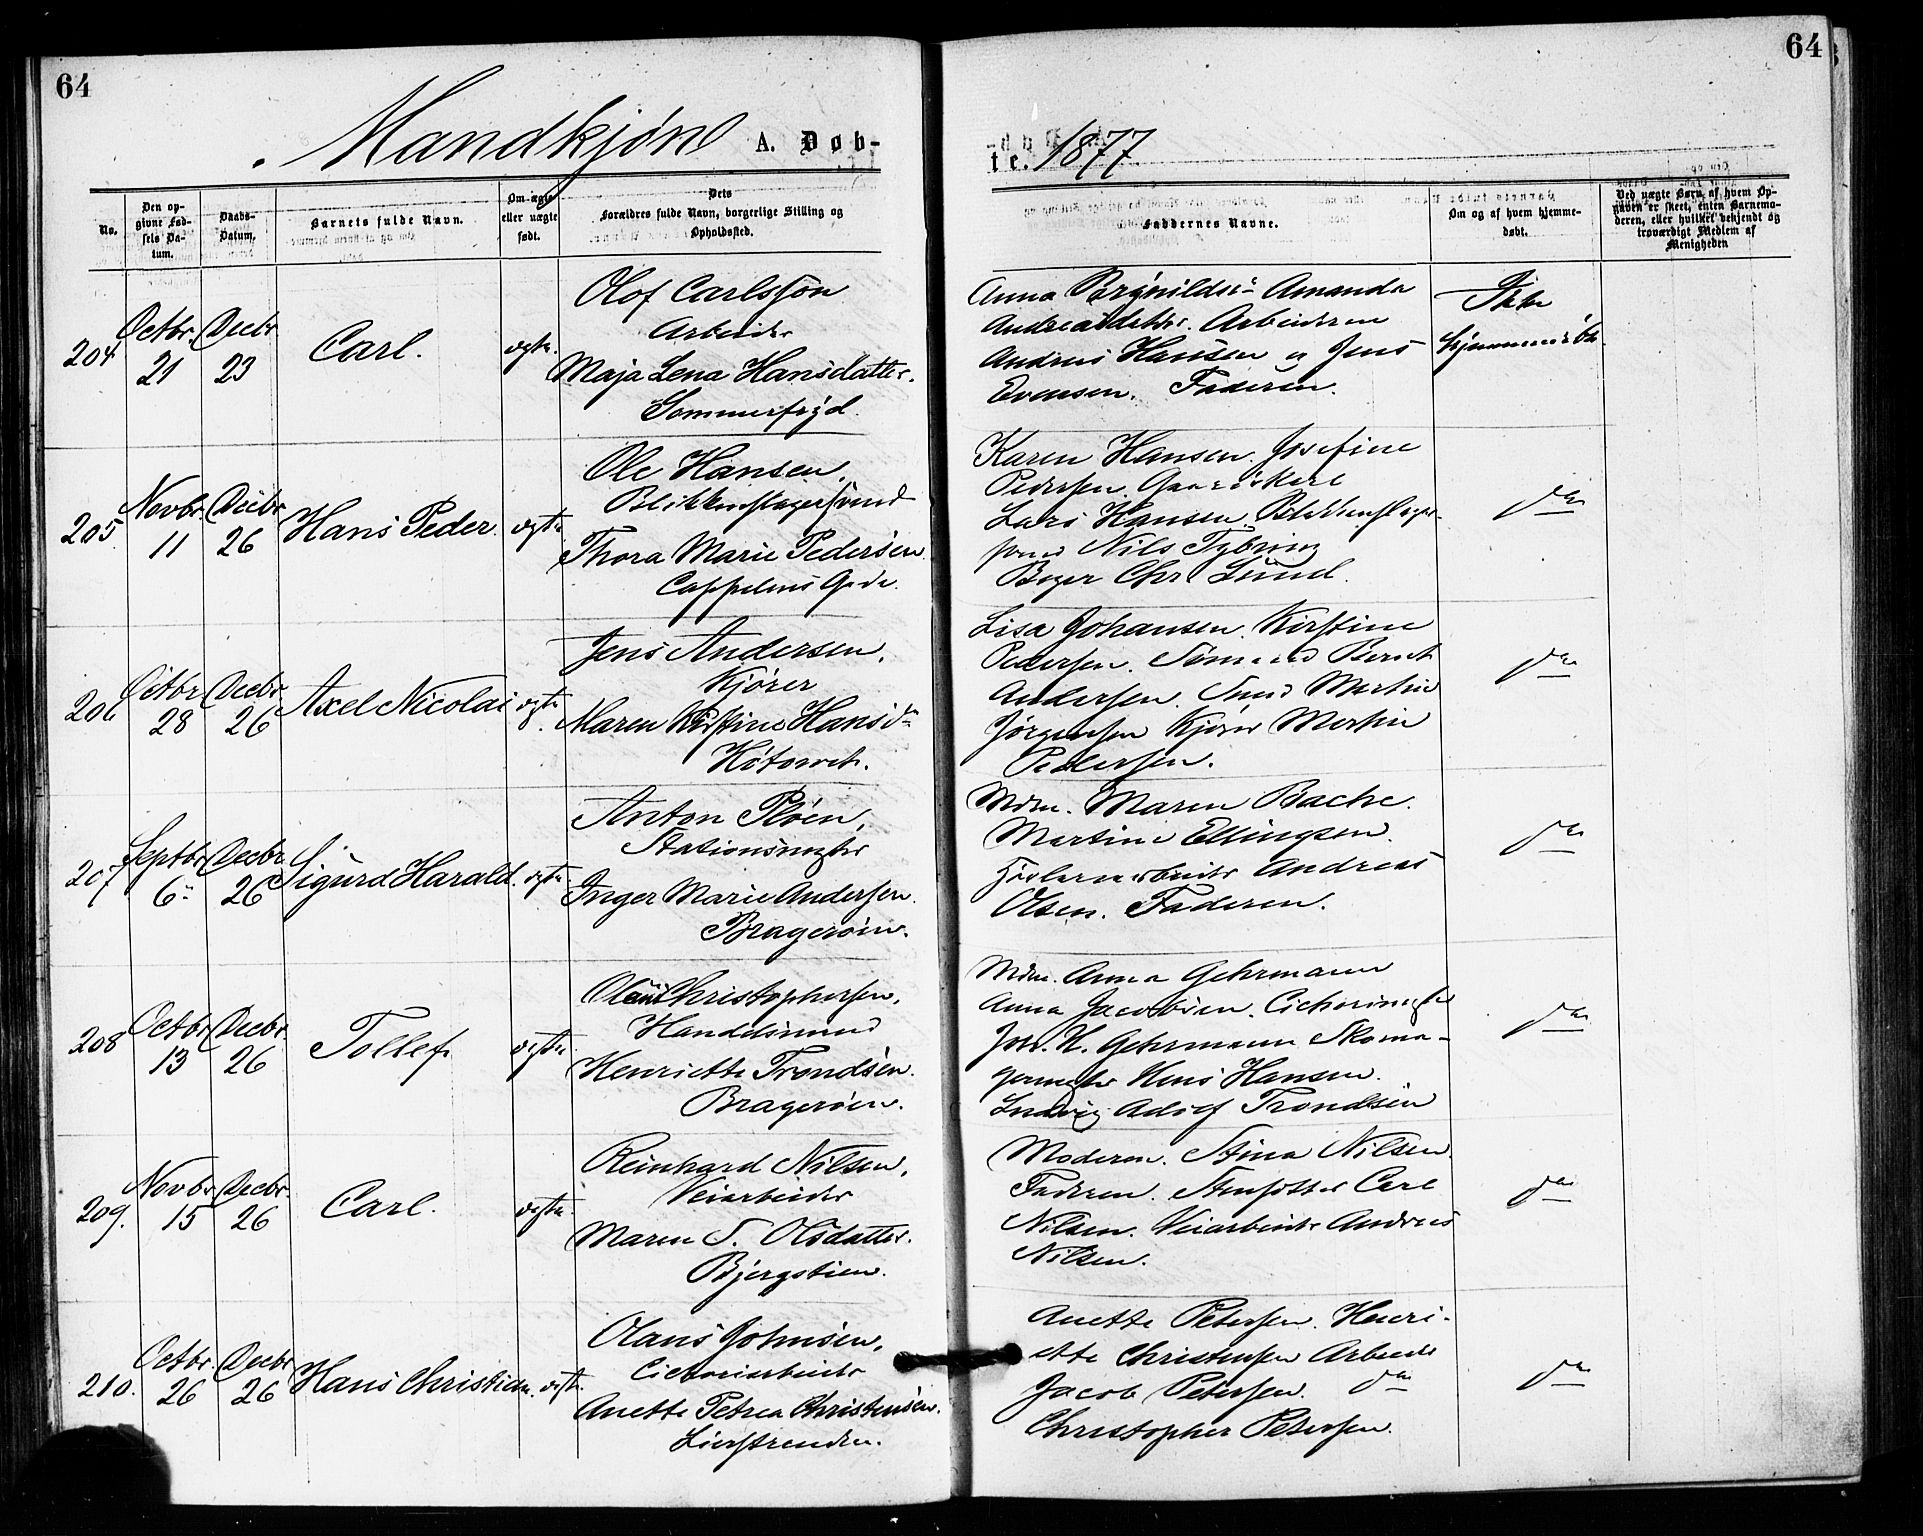 64
64
Mandkjøn A. Døb-
te. 1877.
No.
Den op-
givne Fød-
sels Da-
tum.
Daabs-
Datum.
Barnets fulde Navn.
Om ægte
eller uægte
født.
Dets
Forældres fulde Navn, borgerlige Stilling og
Opholdssted.
Faddernes Navne.
Om og af hvem hjemme-
døbt.
Ved uægte Børn, af hvem Op-
gaven er skeet, enten Barnemo-
deren, eller hvilket bekjendt og
troværdigt Medlem af
Menigheden
204
Octbr.
21
Decbr
23
Carl.
ægte.
Olof Carlsson
Arbeider
Maja Lena Hansdatter.
Sommerfryd.
Anna Amanda
Arbeiderne
Andreas Hansen og Jens
Evensen. Faderen.
Ikke
hjemmedøbt
205.
Novbr.
11
Decbr
26
Hans Peder.
ægte
Ole Hansen,
Blikkenslagersvend
Thora Marie Pedersen.
Cappelens Gade.
Karen Hansen. Josefine
Pedersen. Gaardskarl
Lars Hansen. Blikkenslager-
svend Nils Tybring
Bager Chr. Lund.
do
206
Octbr
28
Decbr
26
Axel Nicolai
ægte.
Jens Andersen,
Kjører
Maren Kirstine Hansdr
Høtorvet.
Lisa Johansen. Kirstine
Pedersen. Sømand Bernt
Andersen. Smed Martin
Jørgensen Kjører Martin
Pedersen.
do
207
Septbr
6
Decbr
26
Sigurd Harald.
ægte.
Anton Pløen,
Stationsmester
Inger Marie Andersen.
Bragerøen.
Mdm. Maren Bache.
Martine Ellingsen.
Andreas
Olsen. Faderen.
do
208
Octbr
13
Decbr.
26
Tollef.
ægte.
Christophersen,
Handelsmand
Henriette Trondsen.
Bragerøen.
Mdm. Anna Gehrmann
Anna Jacobsen. Cichorimester
Joh. H. Gehrmann Skoma-
germester Hans Hansen.
Ludvig Adolf Trondsen
do
209.
Novbr.
15
Decbr.
26
Carl.
ægte.
Reinhard Nilsen,
Veiarbeider
Maren S. Olsdatter.
Bjergstien.
Moderen. Stina Nilsen.
Faderen. Carl
Nilsen. Veiarbeider Andreas
Nilsen.
do
210.
Octbr.
26
Decbr
26
Hans Christian.
ægte.
Olaus Johnsen,
Cichoriarbeider
Anette Petrea Christensen.
Lierstranden.
Anette Petersen. Henri-
ette Christensen Arbeider
Jacob Petersen. do
Christopher Petersen.
do